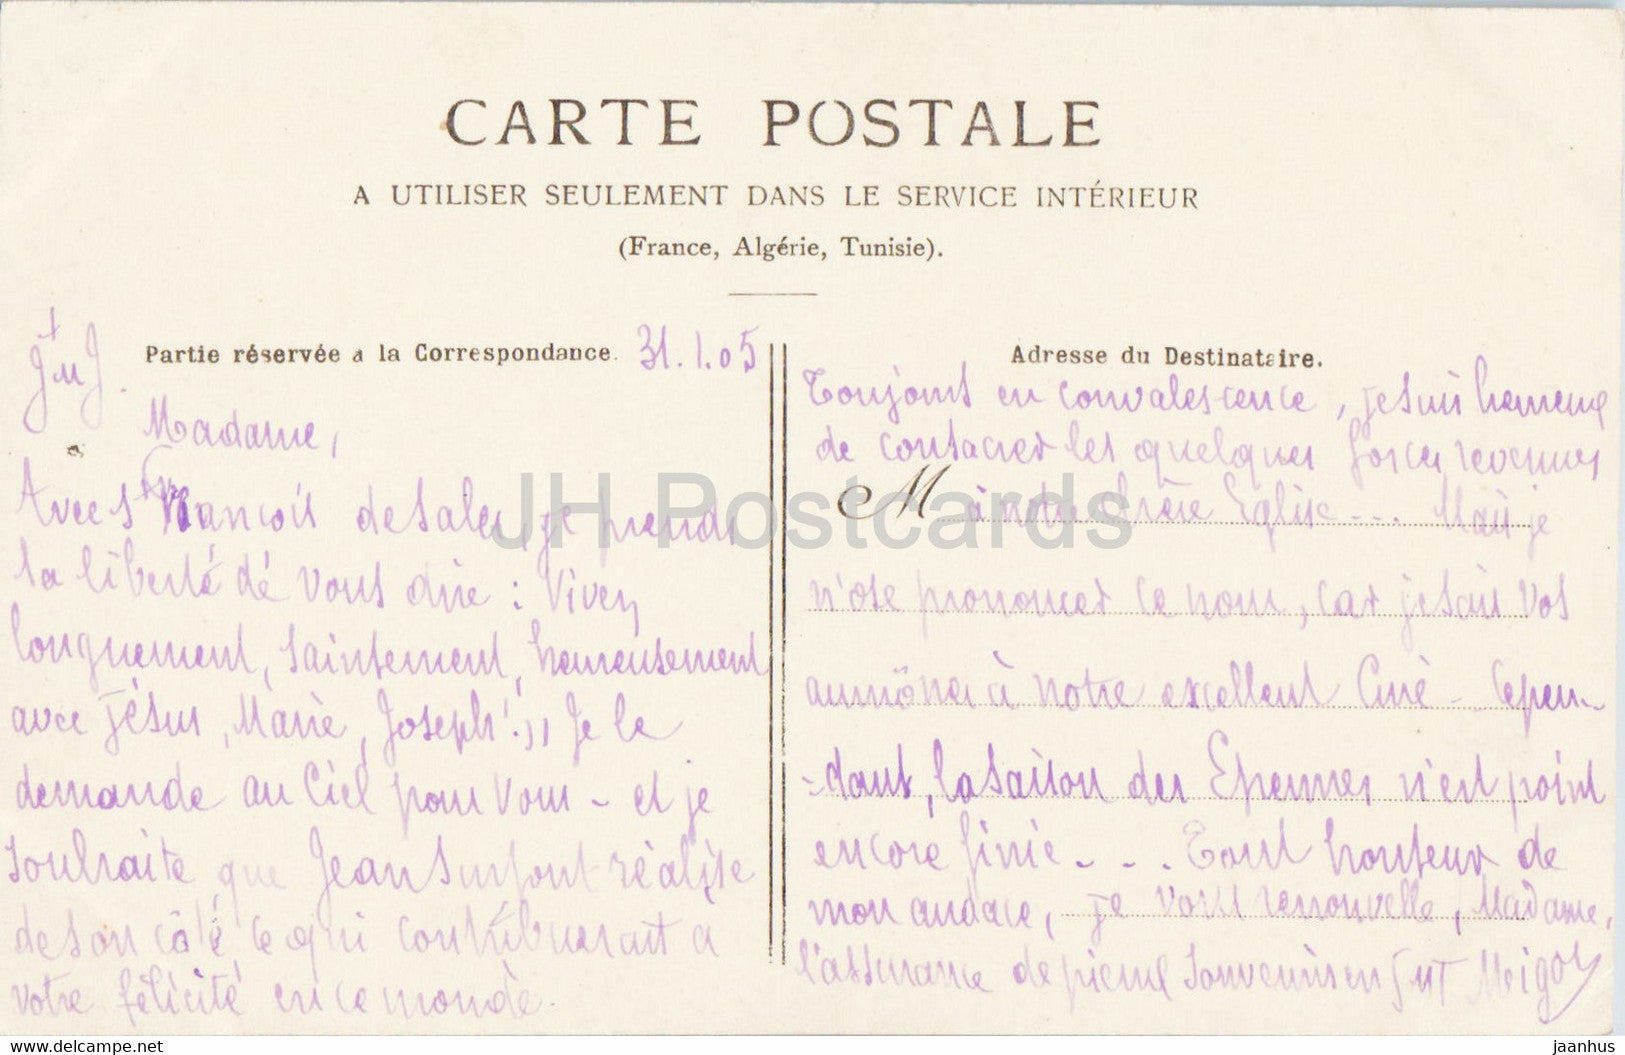 CARTE POSTALE
A UTILISER SEULEMENT DANS LE SERVICE INTÉRIEUR
(France, Algérie, Tunisie).
Partie réservée a la Correspondance. 31.1.05
J M J.
Madame,
Avec St François de Sales, je prends
la liberté de vous dire : Vivez
longuement, saintement, heureusement
avec Jésus, Marie, Joseph!,, Je le
demande au Ciel pour vous - et je
souhaite que Jean surtout réalise
de son côté, ce qui contribuerait a
votre félicité en ce monde.
Adresse du Destinataire.
Toujours en convalescence, je suis heureux
de consacrer les quelques forces revenues
M à notre chère Eglise - - . Mais je
n'ose prononcer ce nom, car je sais vos
aumônes à notre excellent Curé - Cepen-
-dant, la saison des Etrennes n'est point
encore finie - - . Tout honteux de
mon audace, je vous renouvelle, Madame,
l'assurance de pieux souvenirs en
JH Postcards
oldthing.com
jaanhus